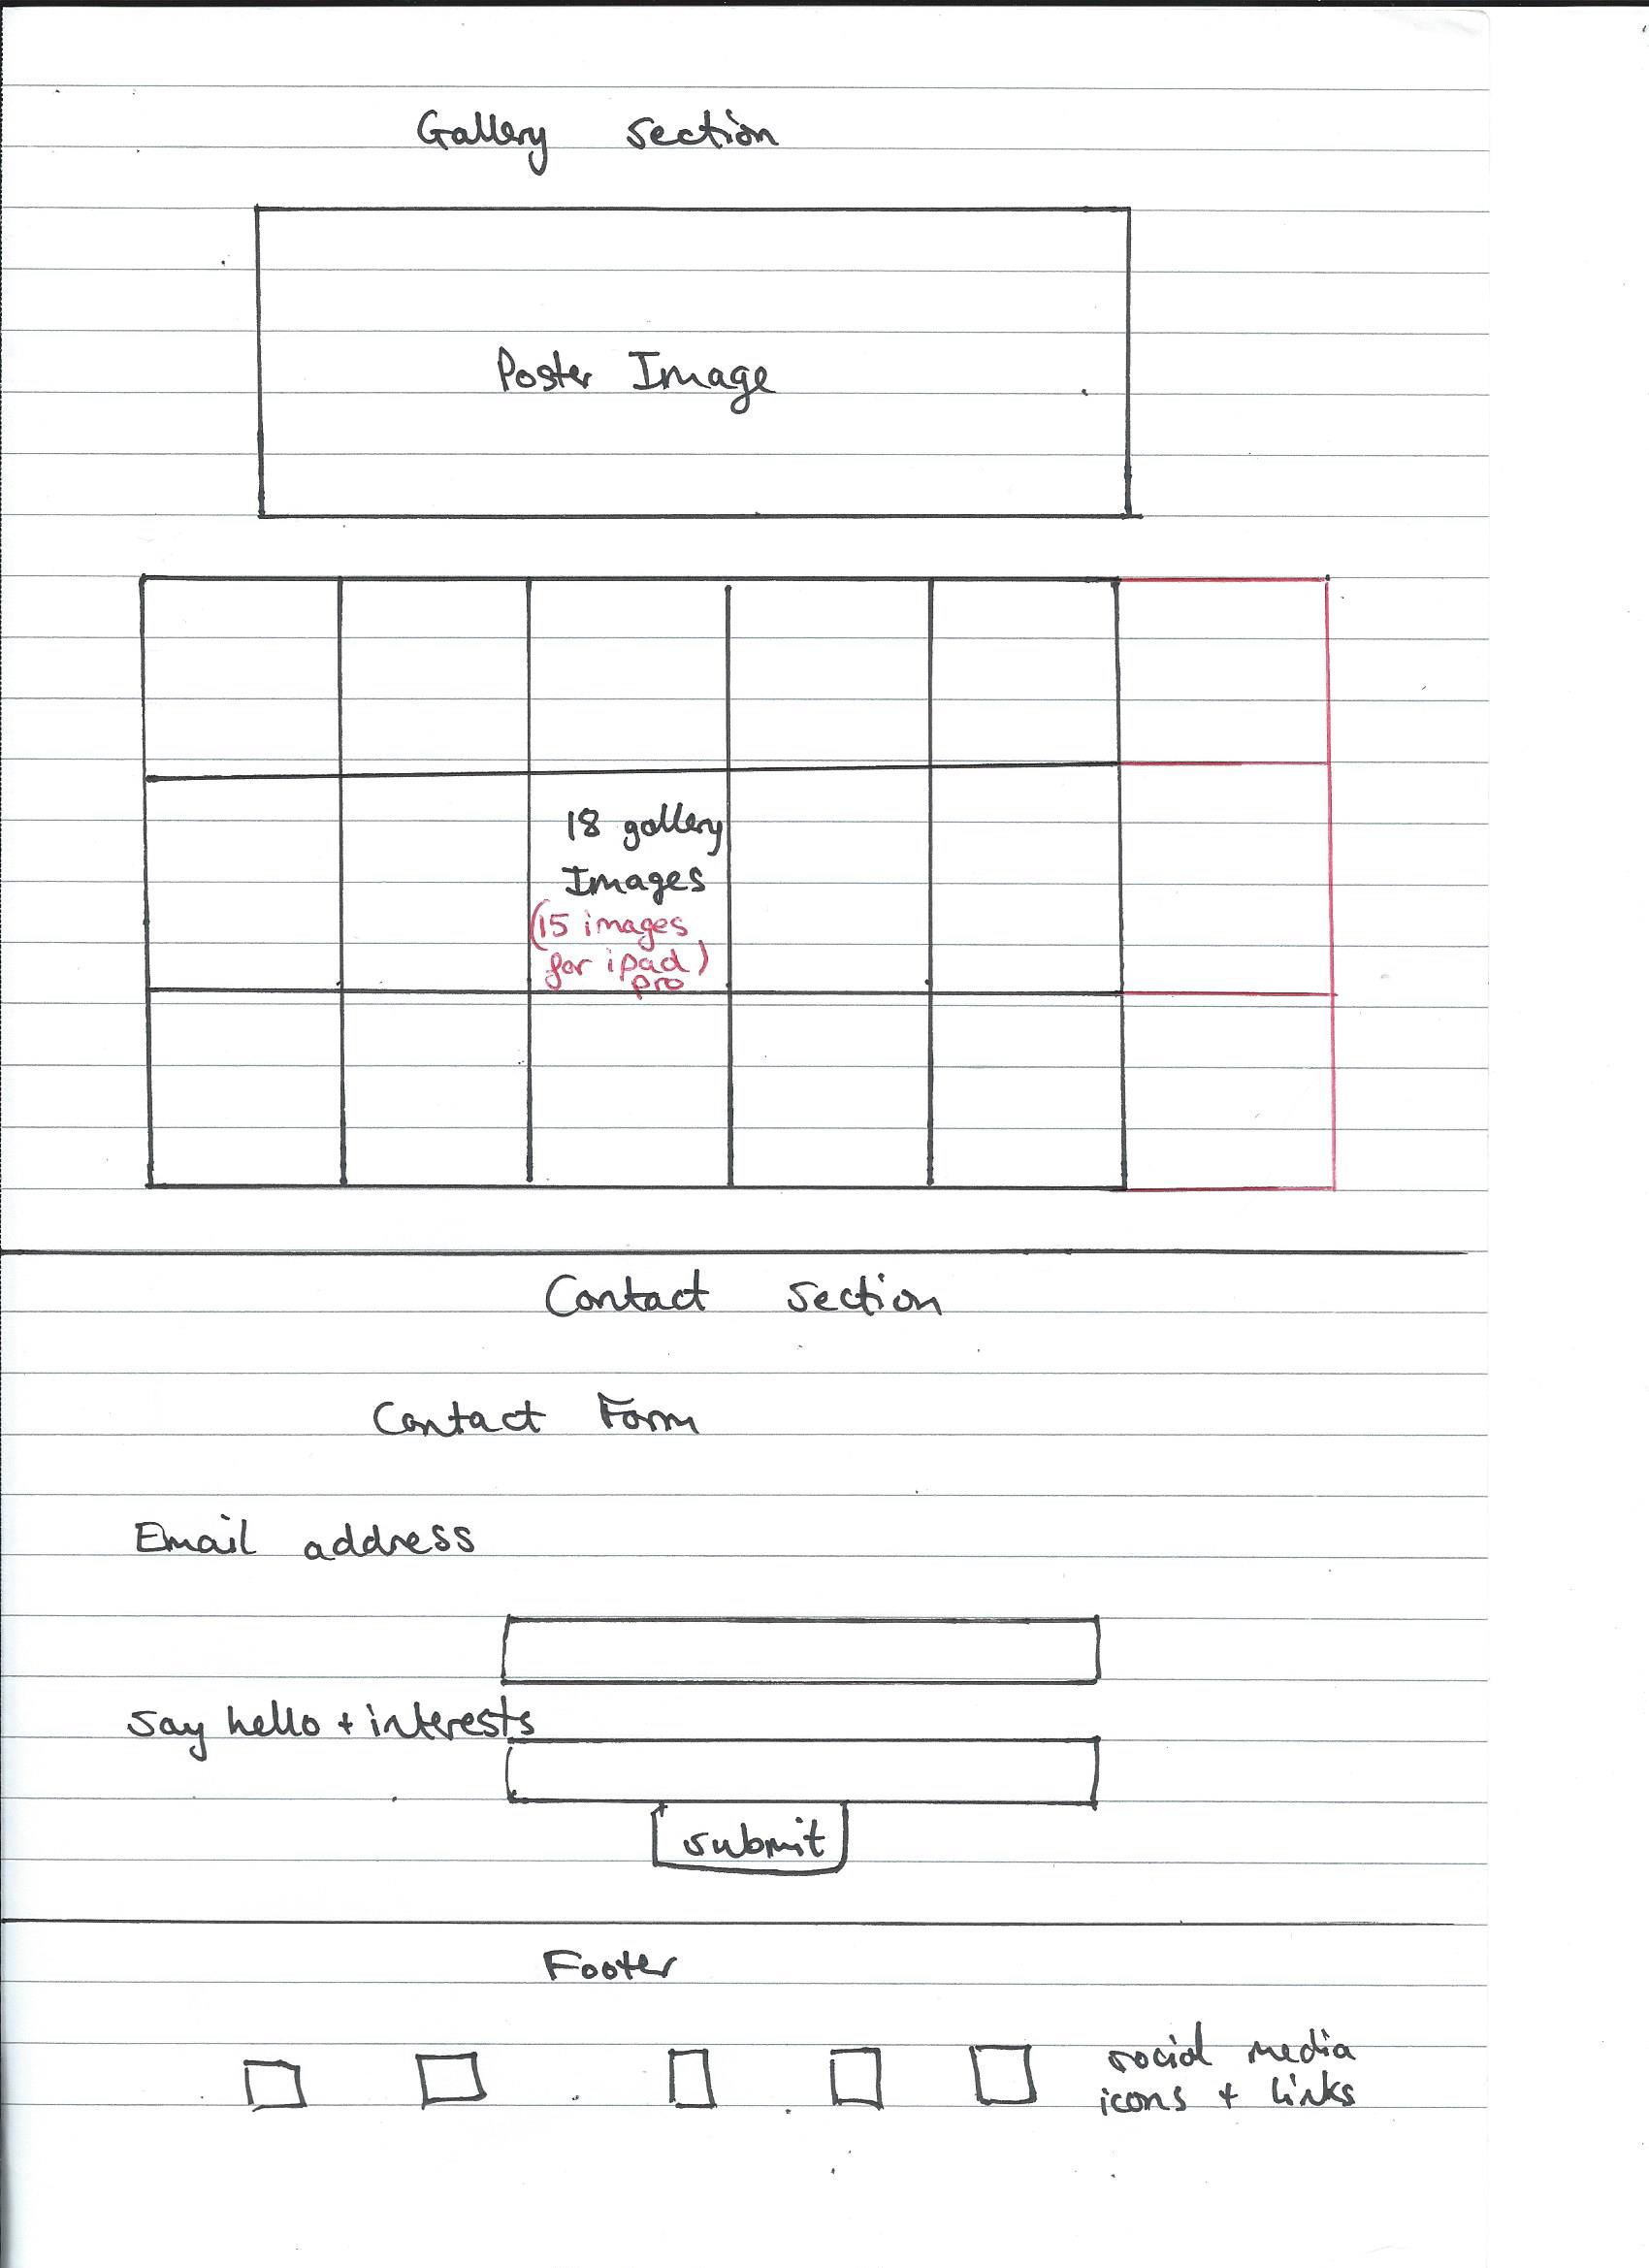 Gallery section
Poster Image
18 gallery
Images
(15 images
for ipad)
pro
Contact section
Contact Form
Email address
Say hello + interests
submit
Footer
social media
icons + links